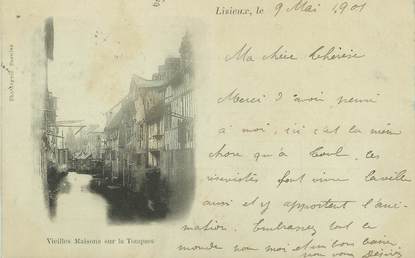 Lisieux, le 9 Mai 1901
Ma chère Thérèse
Merci d'avoir pensé
à moi, ici c'est la même
chose qu'à Toul, les
réservistes font vivre la ville
aussi et y apportent l'ani-
mation. Embrassez tout le
monde pour moi et un bon baiser
pour vous
Vieilles Maisons sur la Touques